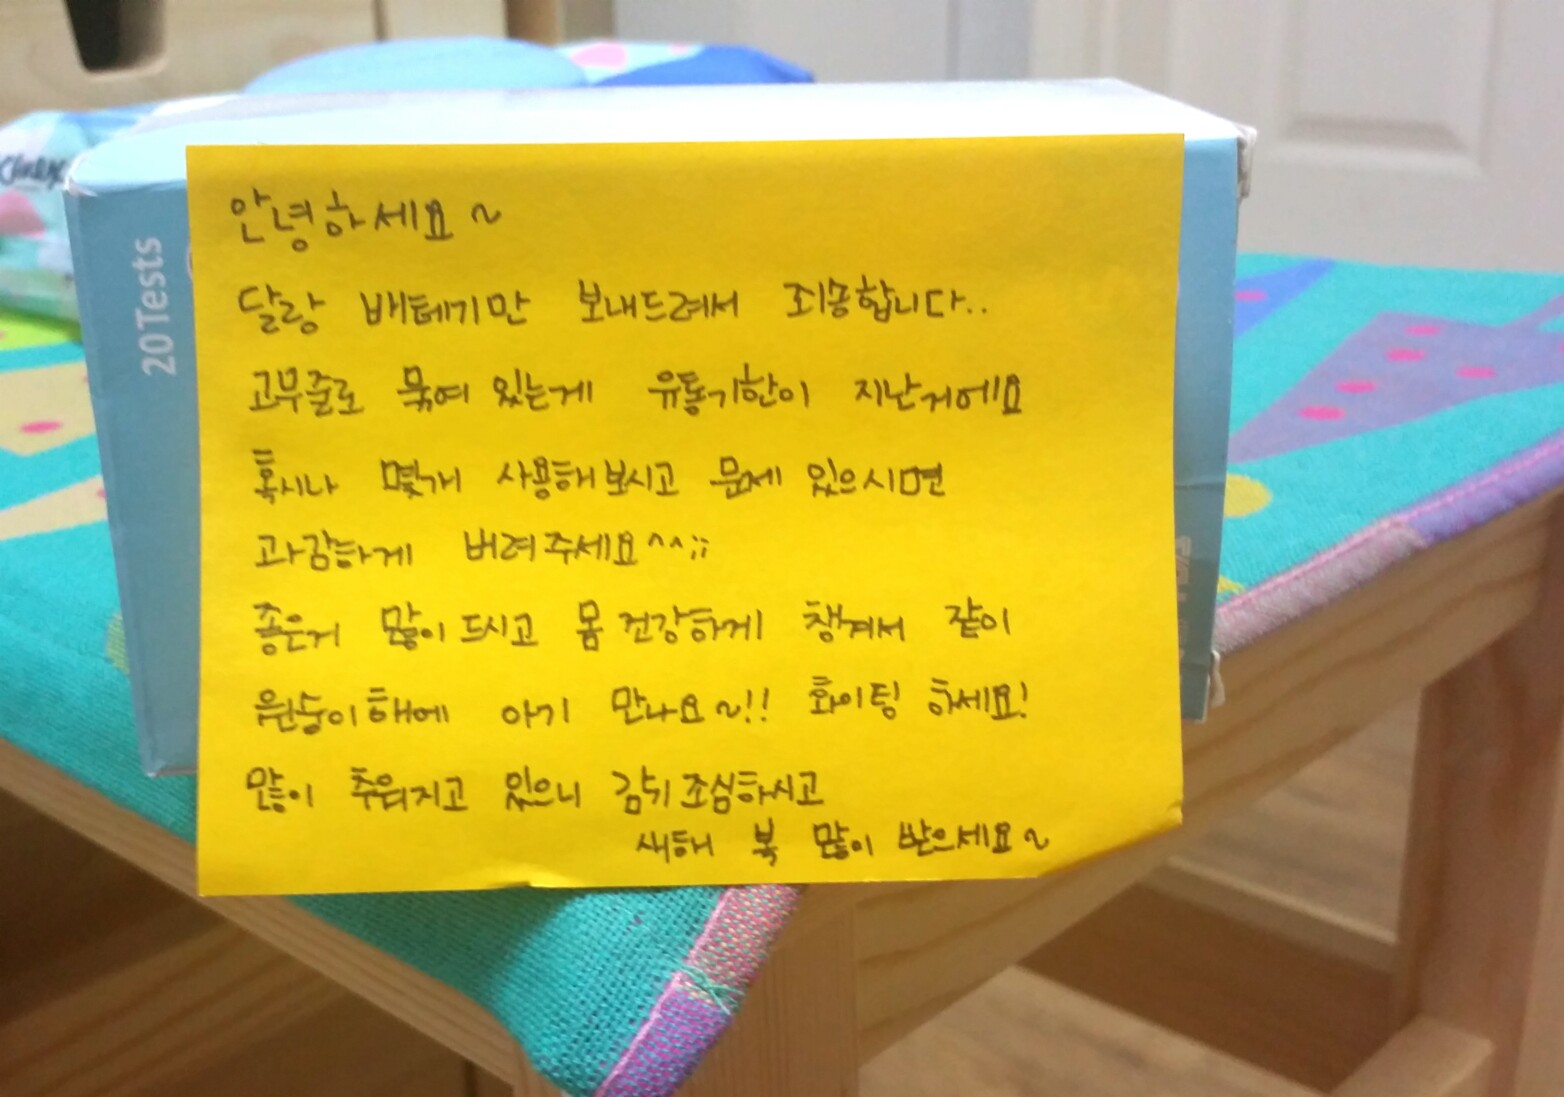 안녕하세요~
달랑 배테기만 보내드려서 죄송합니다..
고무줄로 묶여 있는게 유통기한이 지난거에요
혹시나 몇개 사용해보시고 문제 있으시면
과감하게 버려주세요^^;;
좋은거 많이 드시고 몸 건강하게 챙겨서 같이
원숭이해에 아기 만나요~!! 화이팅 하세요!
많이 추워지고 있으니 감기 조심하시고
새해 복 많이 받으세요~
20Tests